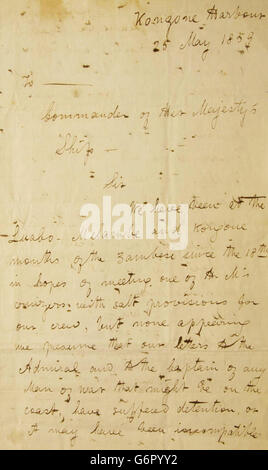 Kongone Harbour
25 May 1859
To
Commander of Her Majesty's
Ship
Sir
We have been at the
Luabo Melambe and Kongone
mouths of the Zambesi since the 18th
in hopes of meeting one of H. M's
cruizers with salt provisions for
our crew, but none appearing
we presume that our letters to the
Admiral and to the Captain of any
Man of war that might be on the
coast, have suffered detention, or
it may have been incompatible
alamy
Image ID: G6PYY2
www.alamy.com